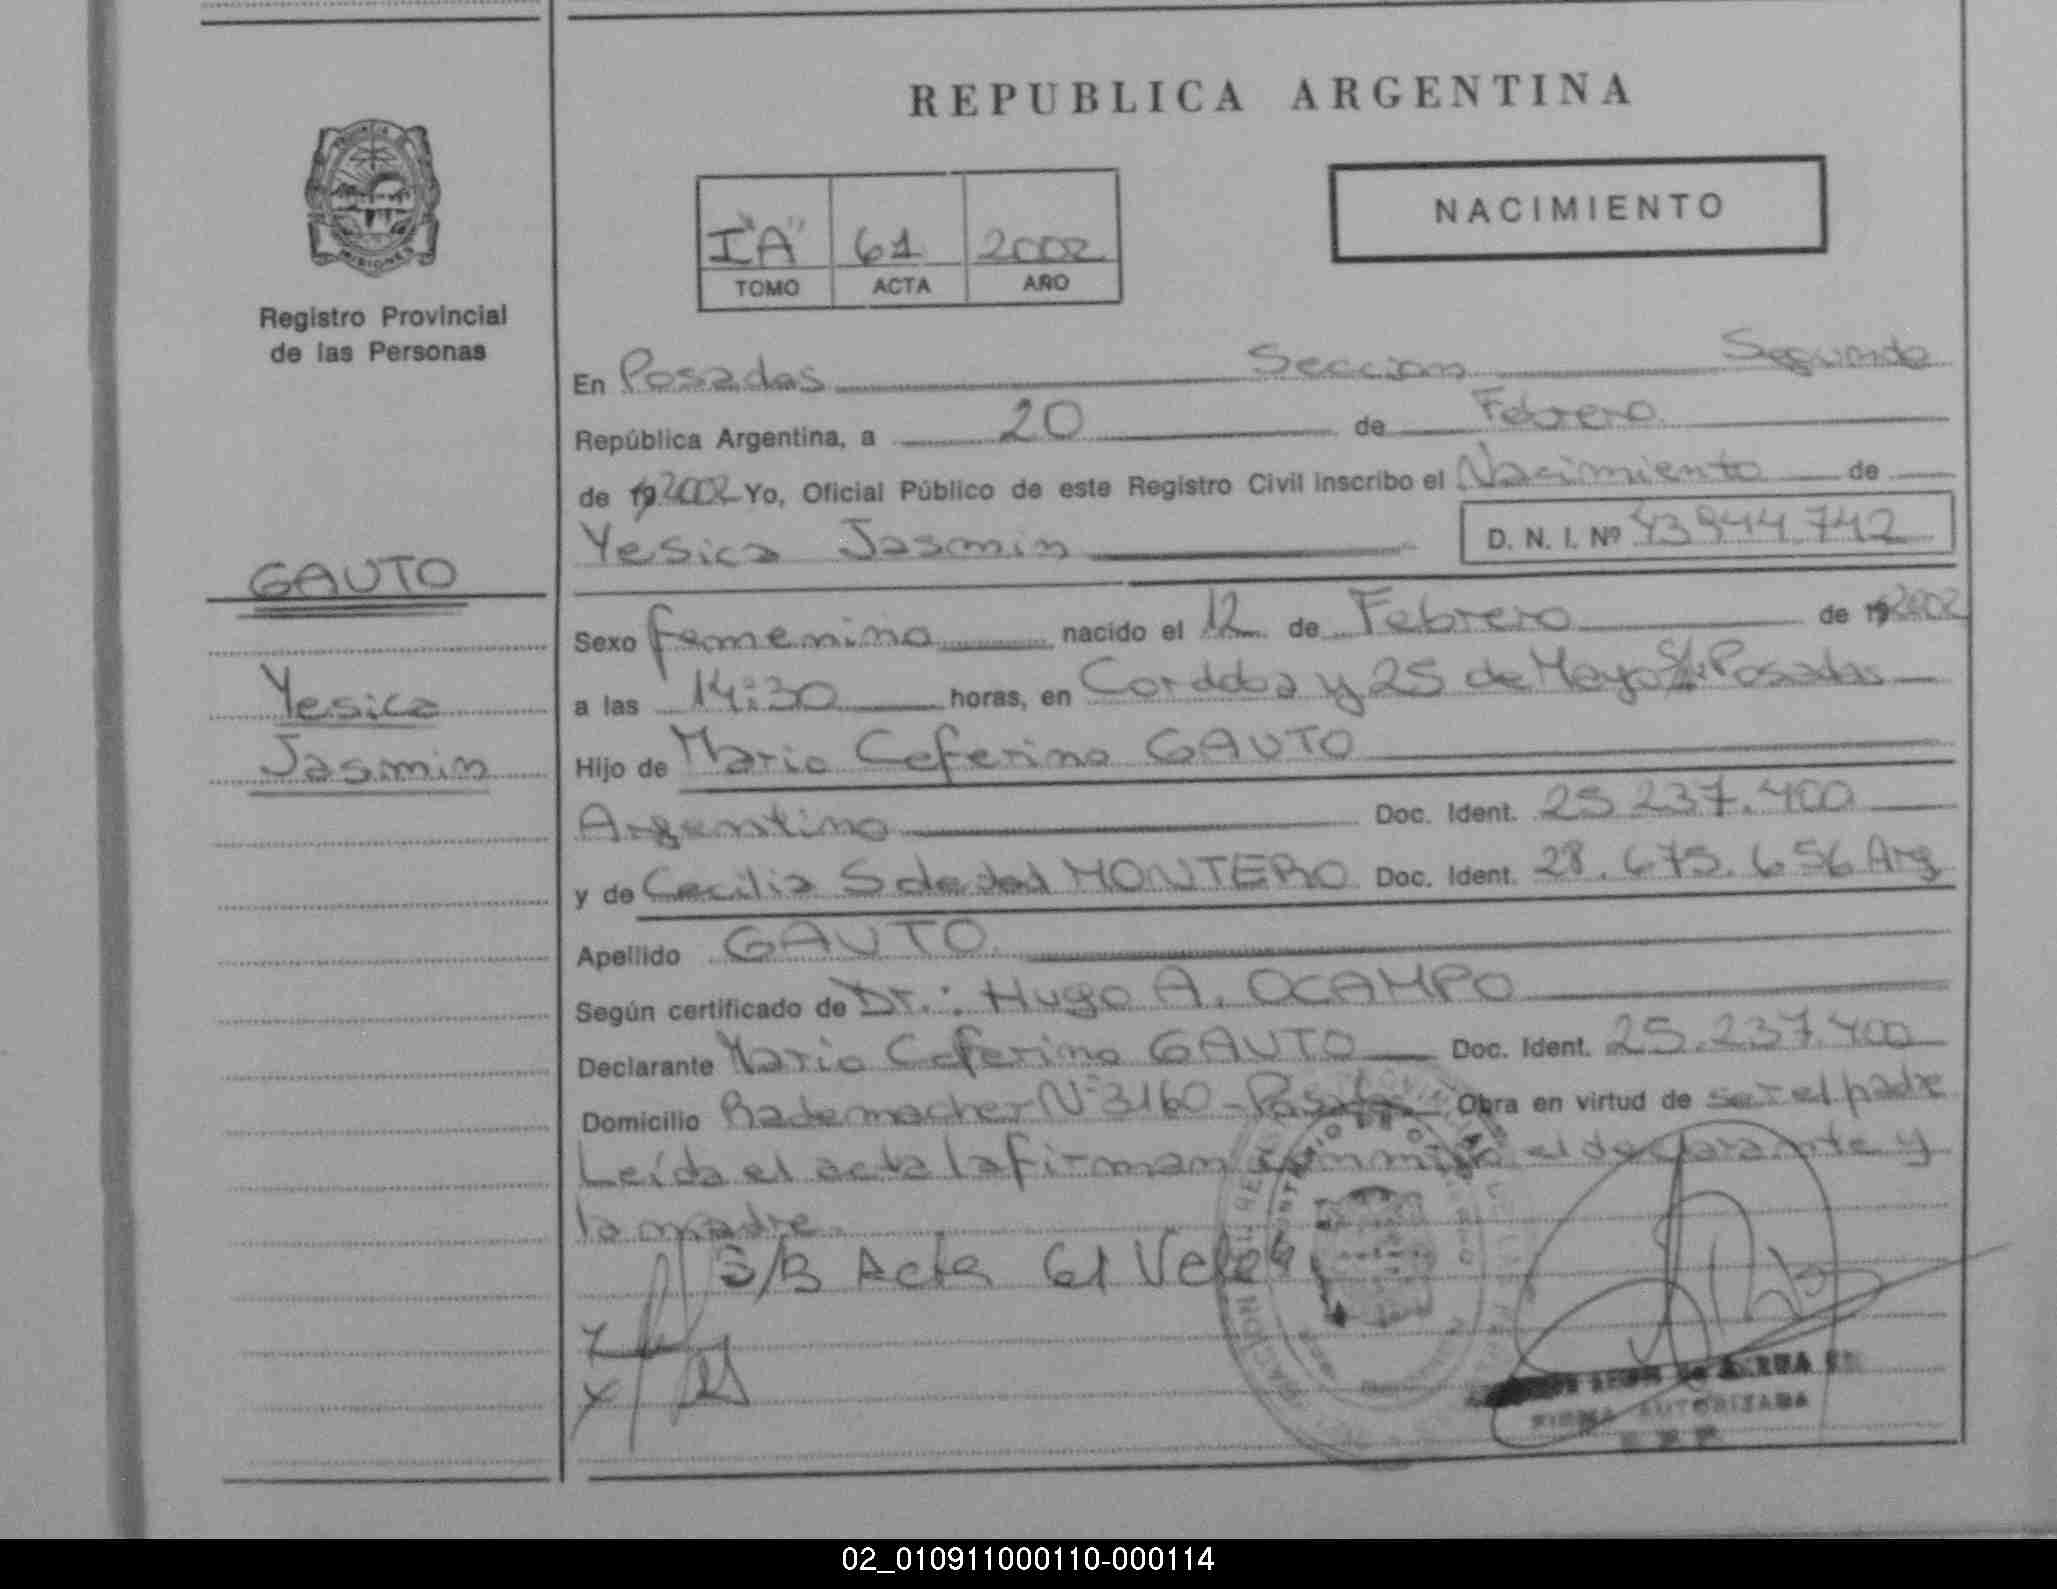 REPUBLICA ARGENTINA
NACIMIENTO
I "A" 61 2002
TOMO ACTA AÑO
MISIONES
Registro Provincial
de las Personas
GAUTO
Yesica
Jasmin
En Posadas Seccion Segunda
República Argentina, a 20 de Febrero
de 19 2002 Yo, Oficial Público de este Registro Civil inscribo el Nacimiento de
Yesica Jasmin D. N. I. Nº 43944.742
Sexo femenino nacido el 12 de Febrero de 19 2002
a las 14:30 horas, en Cordoba y 25 de Mayo Posadas
Hijo de Mario Ceferino GAUTO
Argentino Doc. Ident. 25.237.400
y de Cecilia Soledad MONTERO Doc. Ident. 28.675.656 Arg
Apellido GAUTO
Según certificado de Dr.: Hugo A. OCAMPO
Declarante Mario Ceferino GAUTO Doc. Ident. 25.237.400
Domicilio Rademacher Nº 3160 - Posadas Obra en virtud de ser el padre
Leída el acta la firman conmigo el declarante y
la madre.
S/B Acta 61 Vale
FIRMA AUTORIZADA
02_010911000110-000114